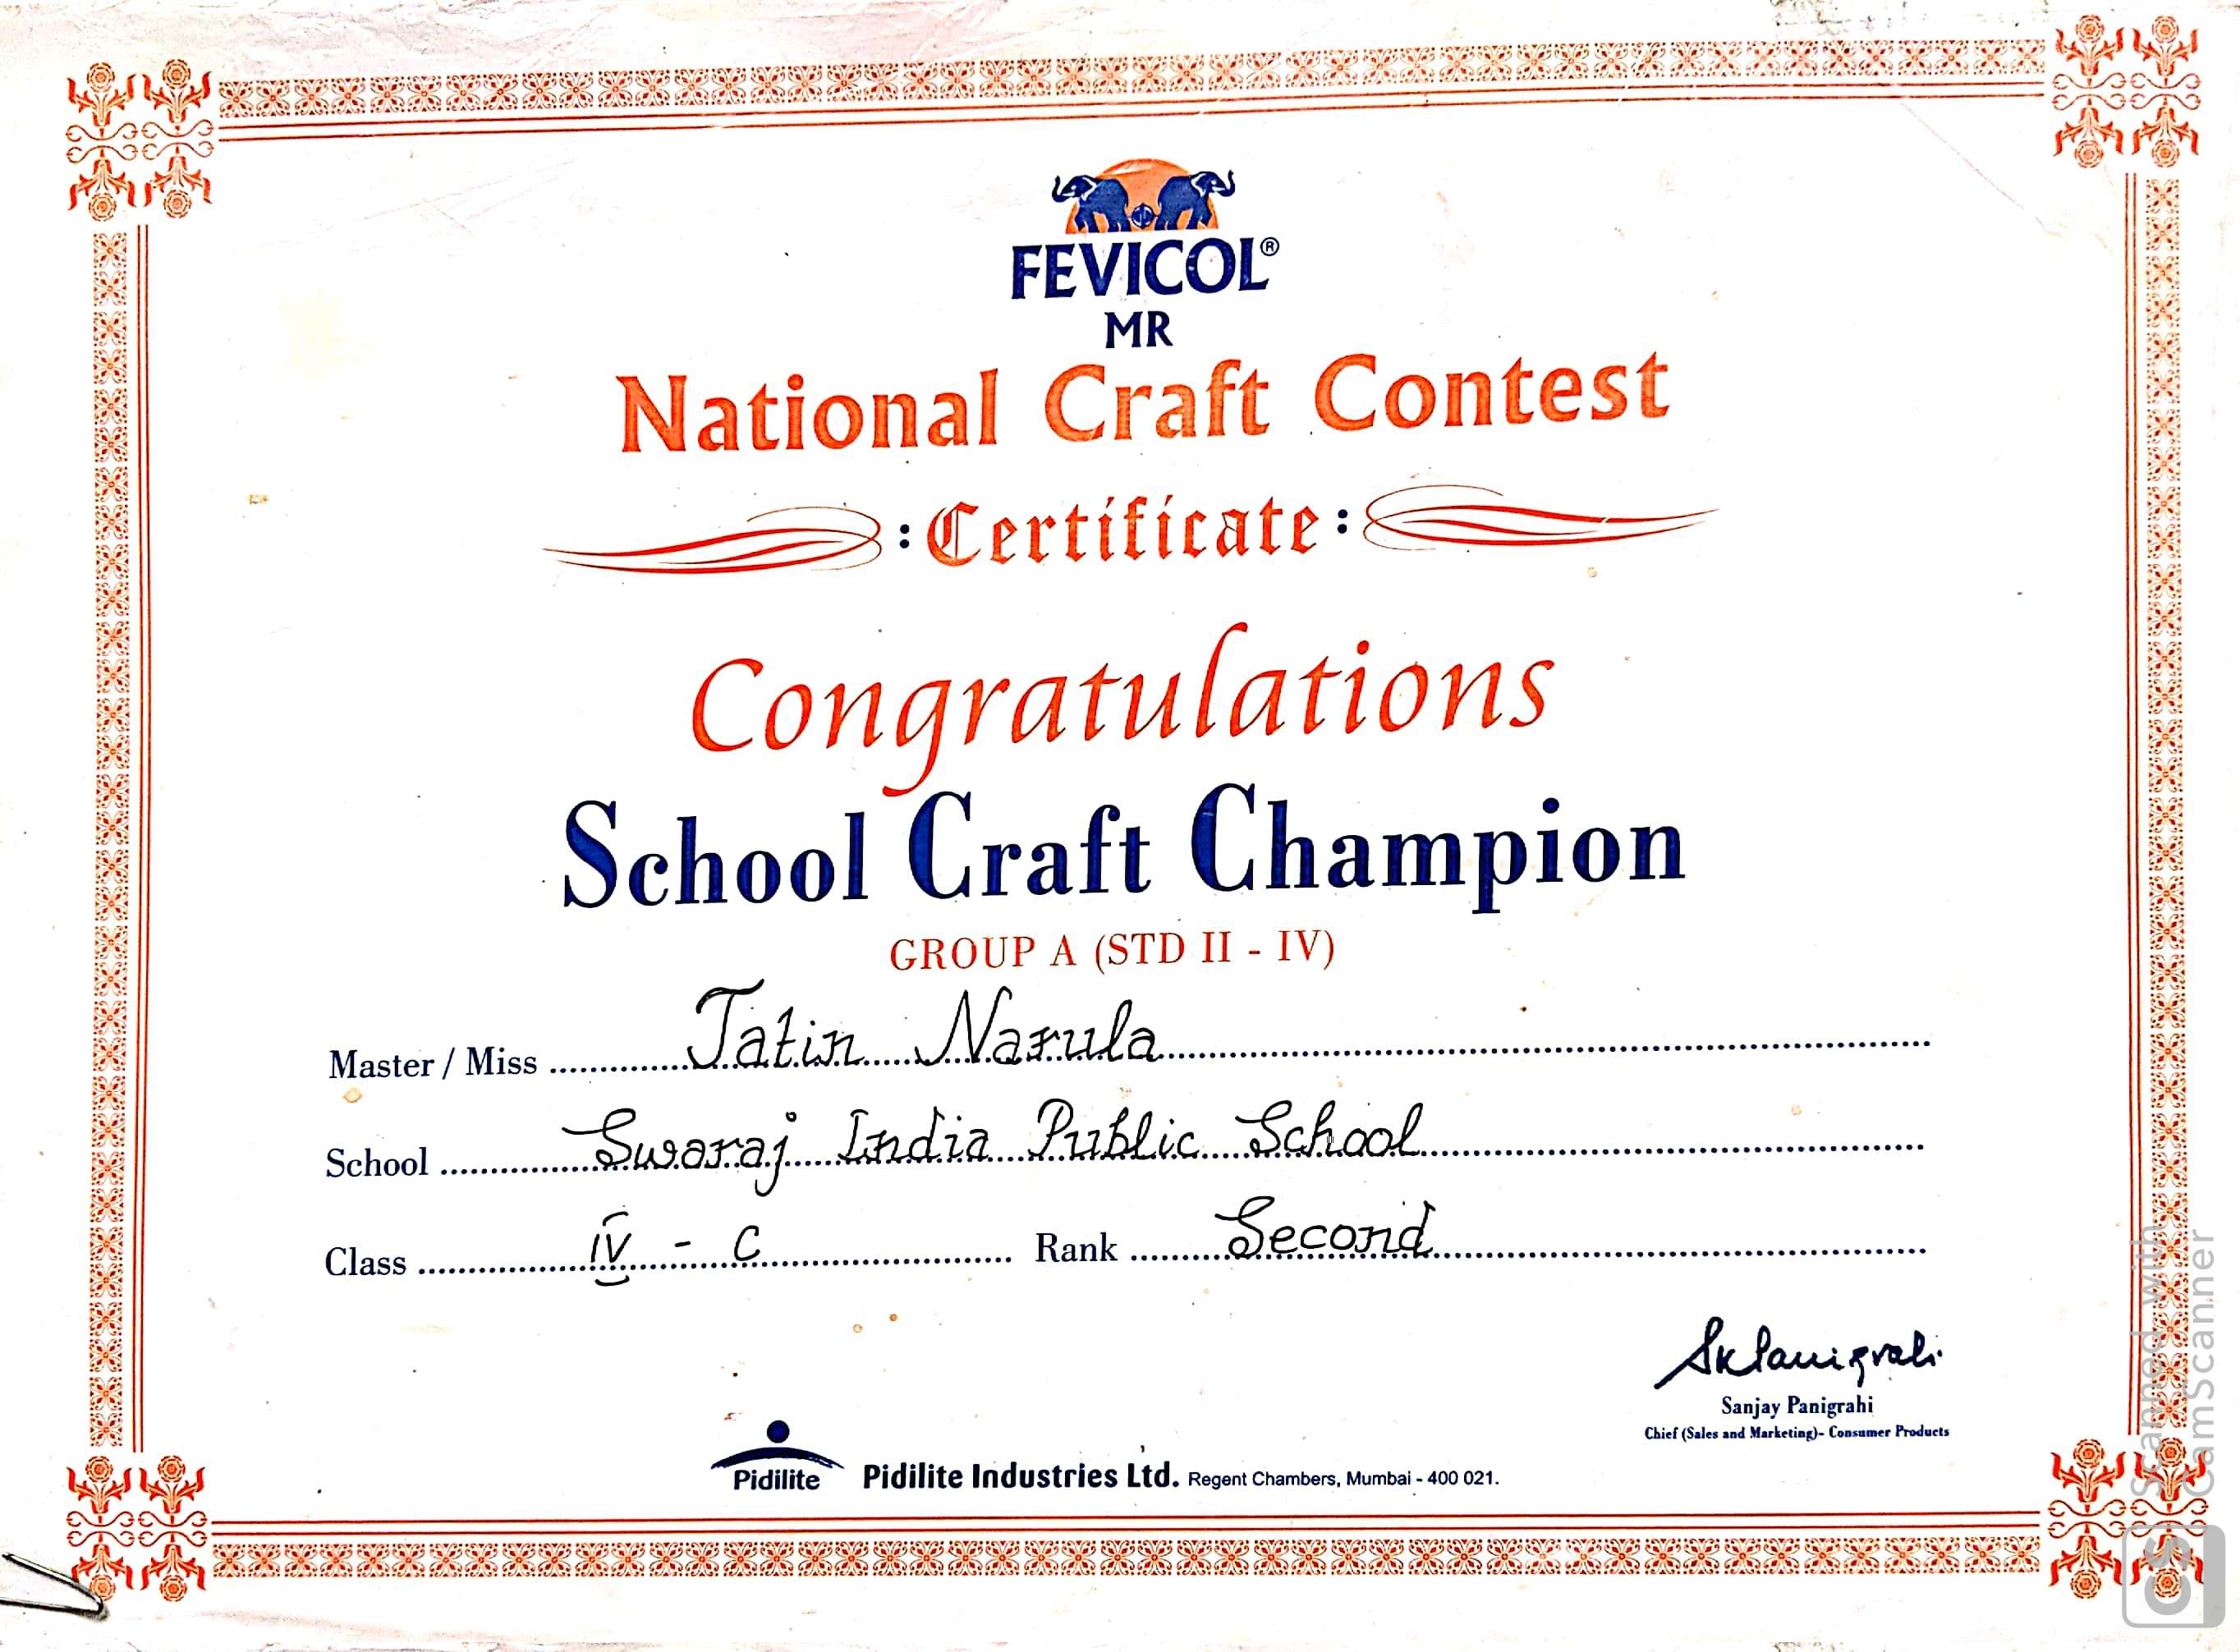 FEVICOL®
MR
National Craft Contest
:Certificate:
Congratulations
School Craft Champion
GROUP A (STD II - IV)
Master / Miss Jatin Narula
School Swaraj India Public School
Class IV - C Rank Second
SKPanigrahi
Sanjay Panigrahi
Chief (Sales and Marketing)- Consumer Products
Pidilite Pidilite Industries Ltd. Regent Chambers, Mumbai - 400 021.
Scanned with
CamScanner
CS